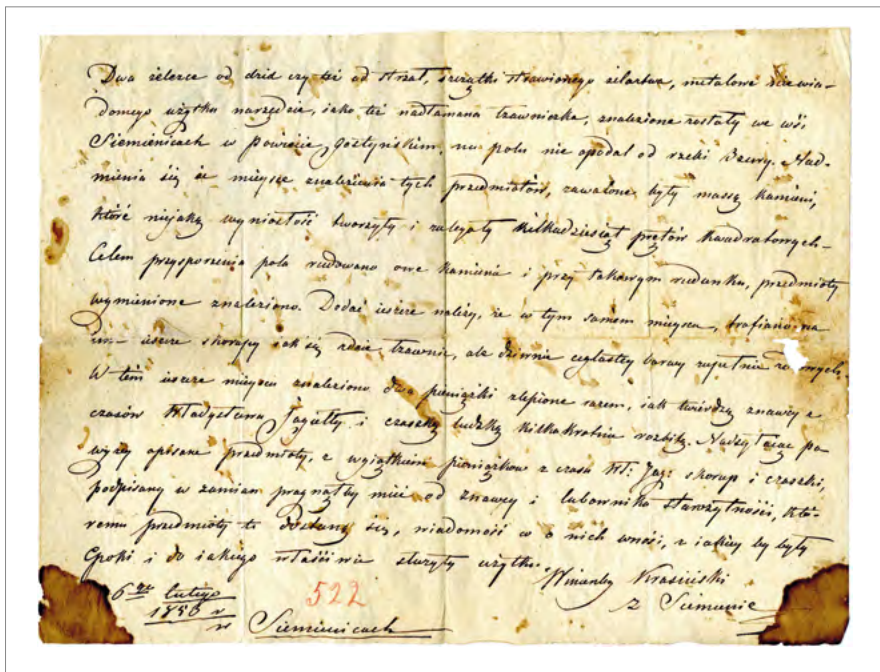 Dwa żelezce od dzid czy też od strzał, szczątki strawionego żelastwa, metalowe niewia-
domego użytku narzędzie, jako też nadłamana łzawniczka, znalezione zostały we wsi
Siemienicach w Powiecie Gostyńskim, na polu nie opodal od rzeki Bzury. Nad-
mienia się że miejsce znalezienia tych przedmiotów, zawalone były massą kamieni,
które niejaką wyniosłość tworzyły i zalegały kilkadziesiąt prętów kwadratowych –
Celem przysporzenia pola rudowano owe kamienie i przy takowym rudunku, przedmioty
wymienione znaleziono. Dodać ieszcze należy, że w tym samem miejscu, trafiano na
ieszcze skorupy iak się zdaie łzawnic, ale dziwnie ceglastey barwy zupełnie
W tém ieszcze miejscu znaleziono dwa pieniążki zlepione razem, iak twierdzą znawcy z
czasów Władysława Jagiełły i czaszkę ludzką kilkakrotnie rozbitą. Nadsyłając po-
wyżey opisane przedmioty, z wyiątkiem pieniążków z czasu Wł: Jag: skorup i czaszki,
podpisany w zamian pragnąłby mieć od znawcy i lubownika starożytności, któ-
remu przedmioty te dostaną się, wiadomość o nich wność, z iakiey by były
Epoki i do iakiego właściwie służyły użytku.
Wincenty Krasiński
z Siemienic
6go lutego
1856 r
w Siemienicach
522